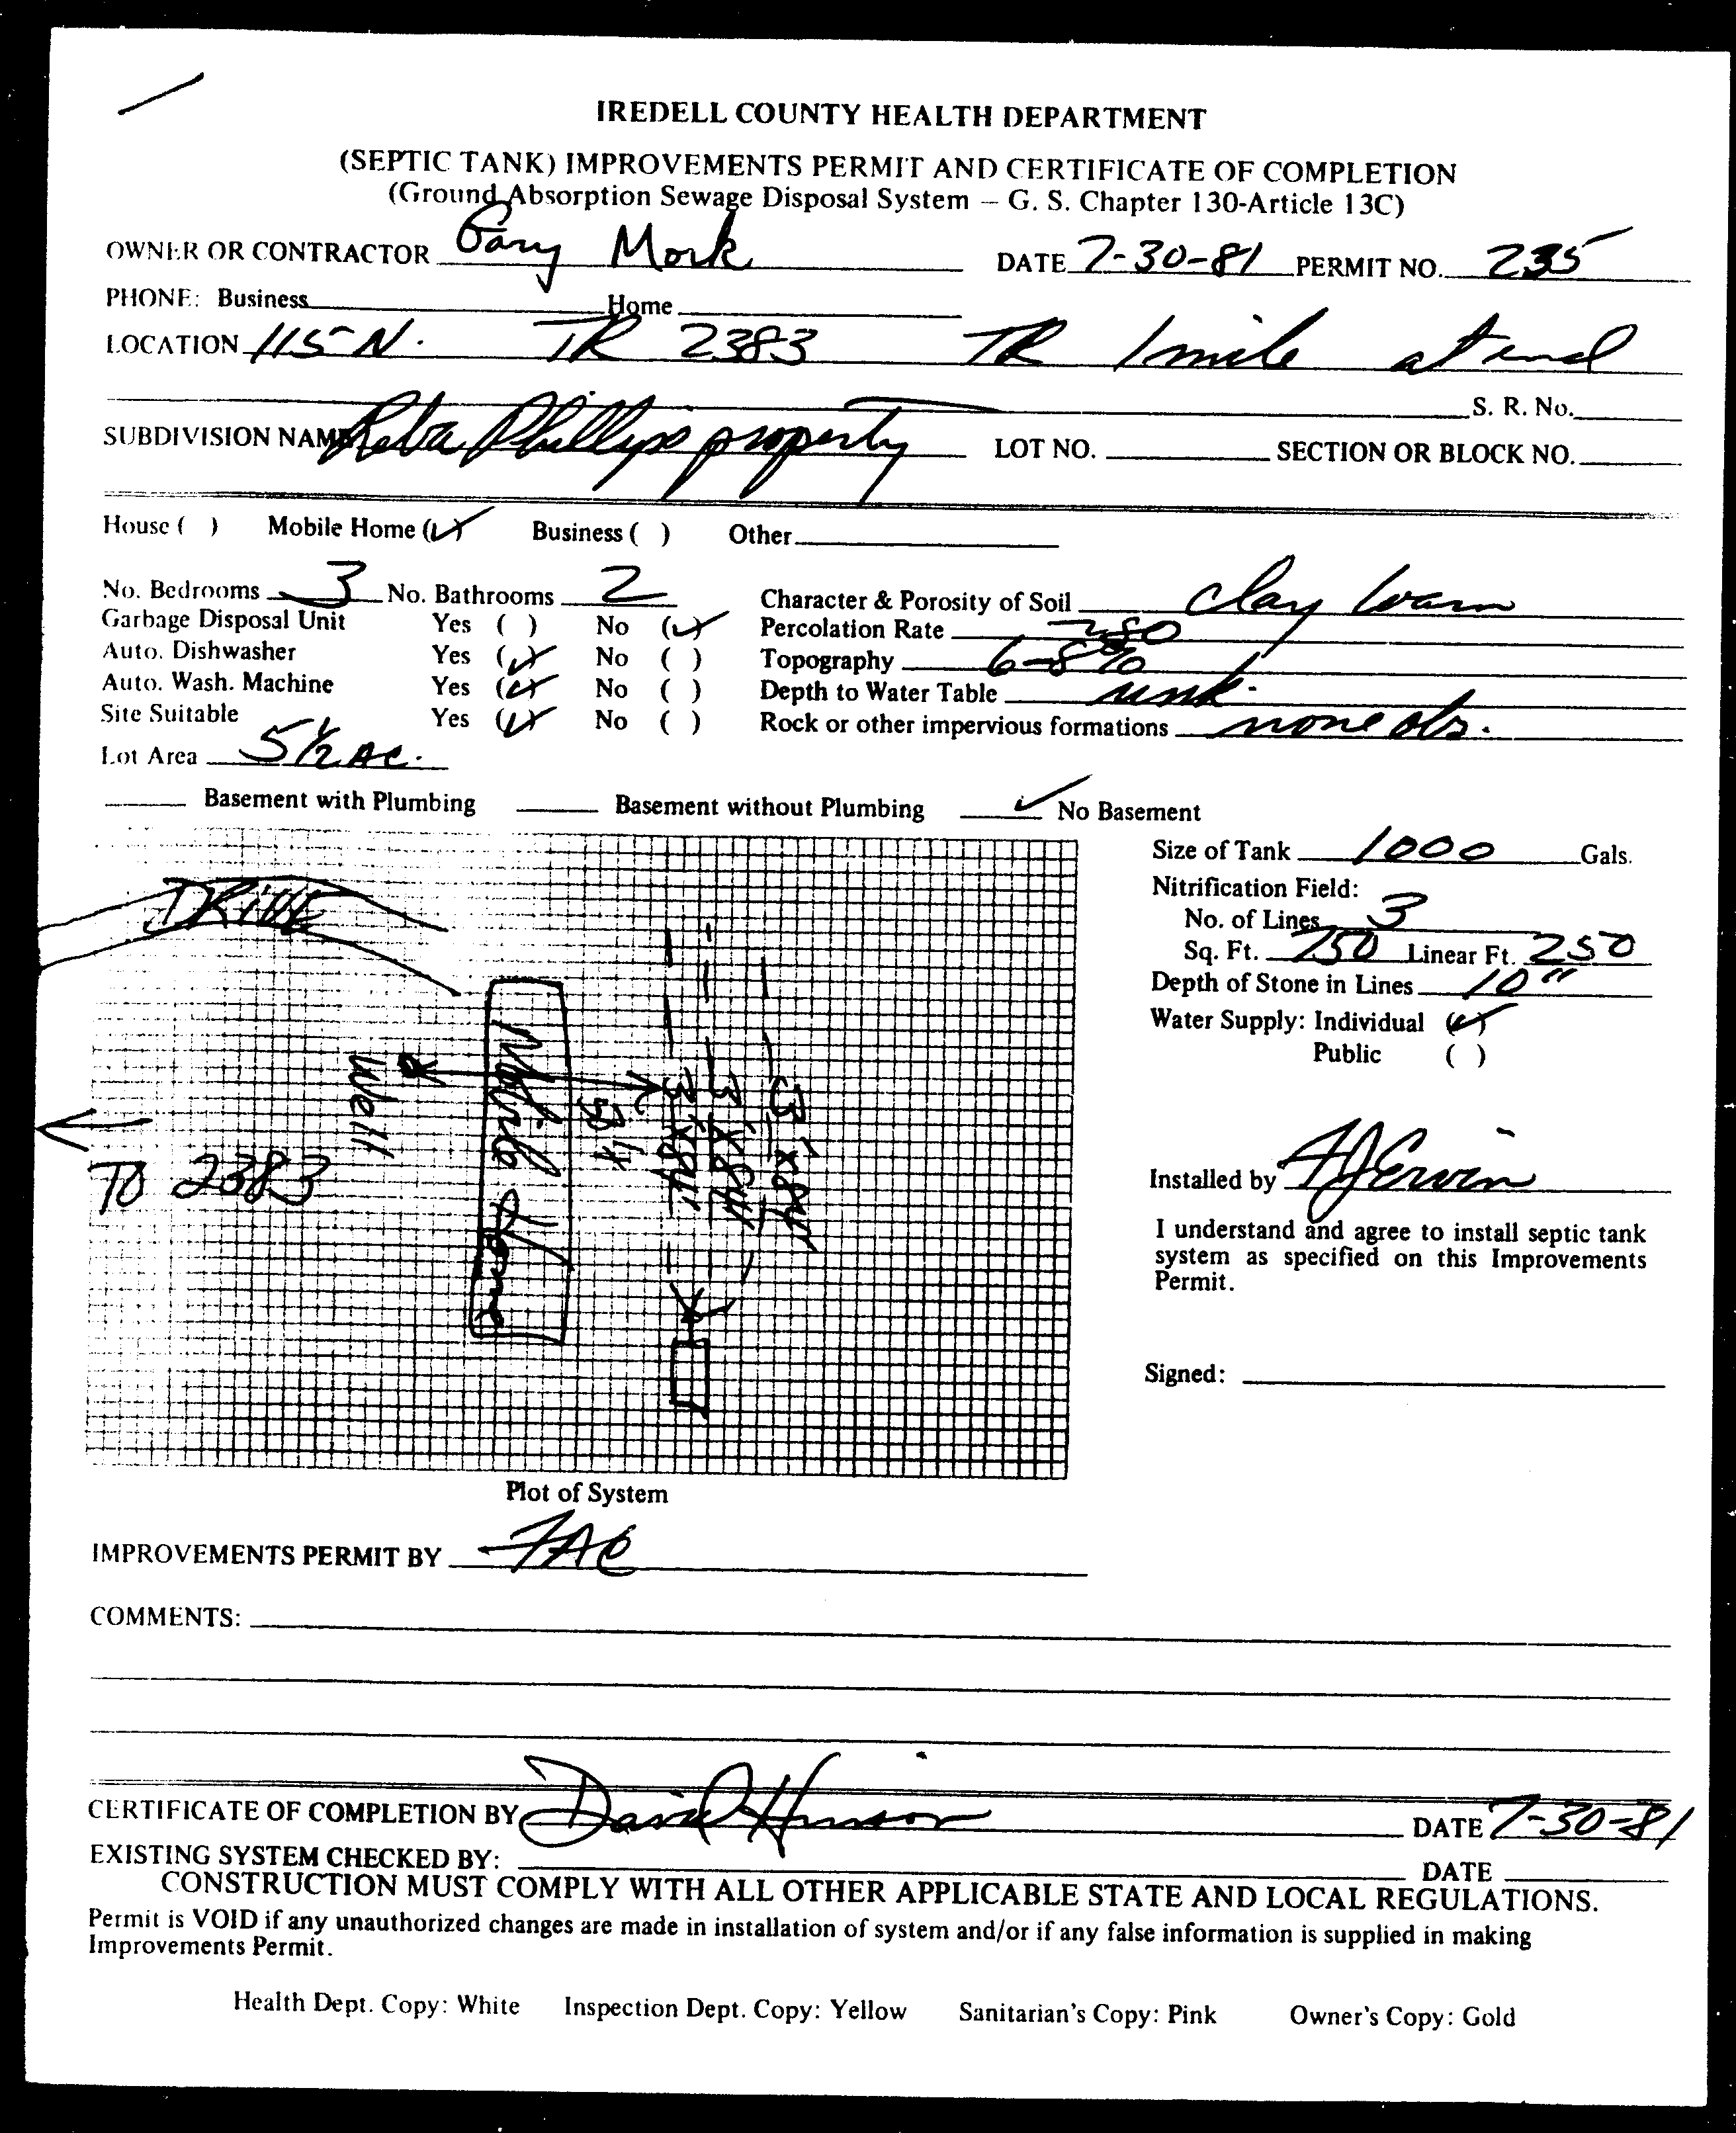 IREDELL COUNTY HEALTH DEPARTMENT
(SEPTIC TANK) IMPROVEMENTS PERMIT AND CERTIFICATE OF COMPLETION
(Ground Absorption Sewage Disposal System – G. S. Chapter 130-Article 13C)
OWNER OR CONTRACTOR Gary Mork DATE 7-30-81 PERMIT NO. 235
PHONE: Business Home
LOCATION 115 N. TR 2383 TR 1 mile at end
S. R. No.
SUBDIVISION NAME Reba Phillips property LOT NO. SECTION OR BLOCK NO.
House ( ) Mobile Home (✓) Business ( ) Other
No. Bedrooms 3 No. Bathrooms 2 Character & Porosity of Soil clay loam
Garbage Disposal Unit Yes ( ) No (✓) Percolation Rate
Auto. Dishwasher Yes (✓) No ( ) Topography 6-8%
Auto. Wash. Machine Yes (✓) No ( ) Depth to Water Table unk.
Site Suitable Yes (✓) No ( ) Rock or other impervious formations none obs.
Lot Area 5½ AC.
Basement with Plumbing Basement without Plumbing ✓ No Basement
Size of Tank 1000 Gals.
Nitrification Field:
No. of Lines 3
Sq. Ft. 750 Linear Ft. 250
Depth of Stone in Lines 10"
Water Supply: Individual (✓)
Public ( )
DRIVE
Well
Mobile Home
3'x84'
3'x84'
3'x84'
TO 2383
Installed by Ervin
I understand and agree to install septic tank
system as specified on this Improvements
Permit.
Signed:
Plot of System
IMPROVEMENTS PERMIT BY
COMMENTS:
CERTIFICATE OF COMPLETION BY David Hinson DATE 7-30-81
EXISTING SYSTEM CHECKED BY: DATE
CONSTRUCTION MUST COMPLY WITH ALL OTHER APPLICABLE STATE AND LOCAL REGULATIONS.
Permit is VOID if any unauthorized changes are made in installation of system and/or if any false information is supplied in making
Improvements Permit.
Health Dept. Copy: White Inspection Dept. Copy: Yellow Sanitarian's Copy: Pink Owner's Copy: Gold